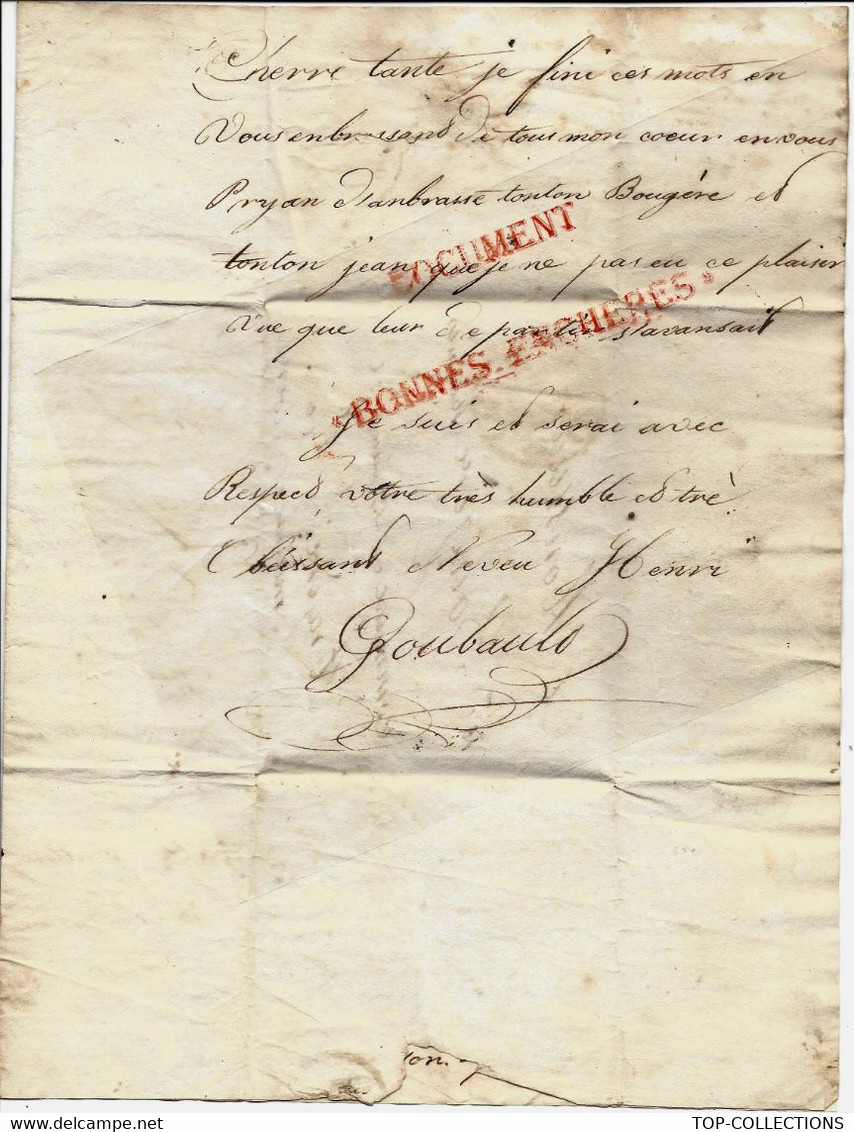 Cherre tante je fini ces mots en
Vous enbrassand de tous mon coeur en vous
Pryan d'anbrasse tonton Bougère et
tonton jean que je ne pas eu ce plaisir
DOCUMENT
Vue que leur departire s'avansait
* BONNES ENCHERES *
Je suis et serai avec
Respect votre très humble et trè
Obéissant Neveu Henri
Goubault
ion.
TOP-COLLECTIONS